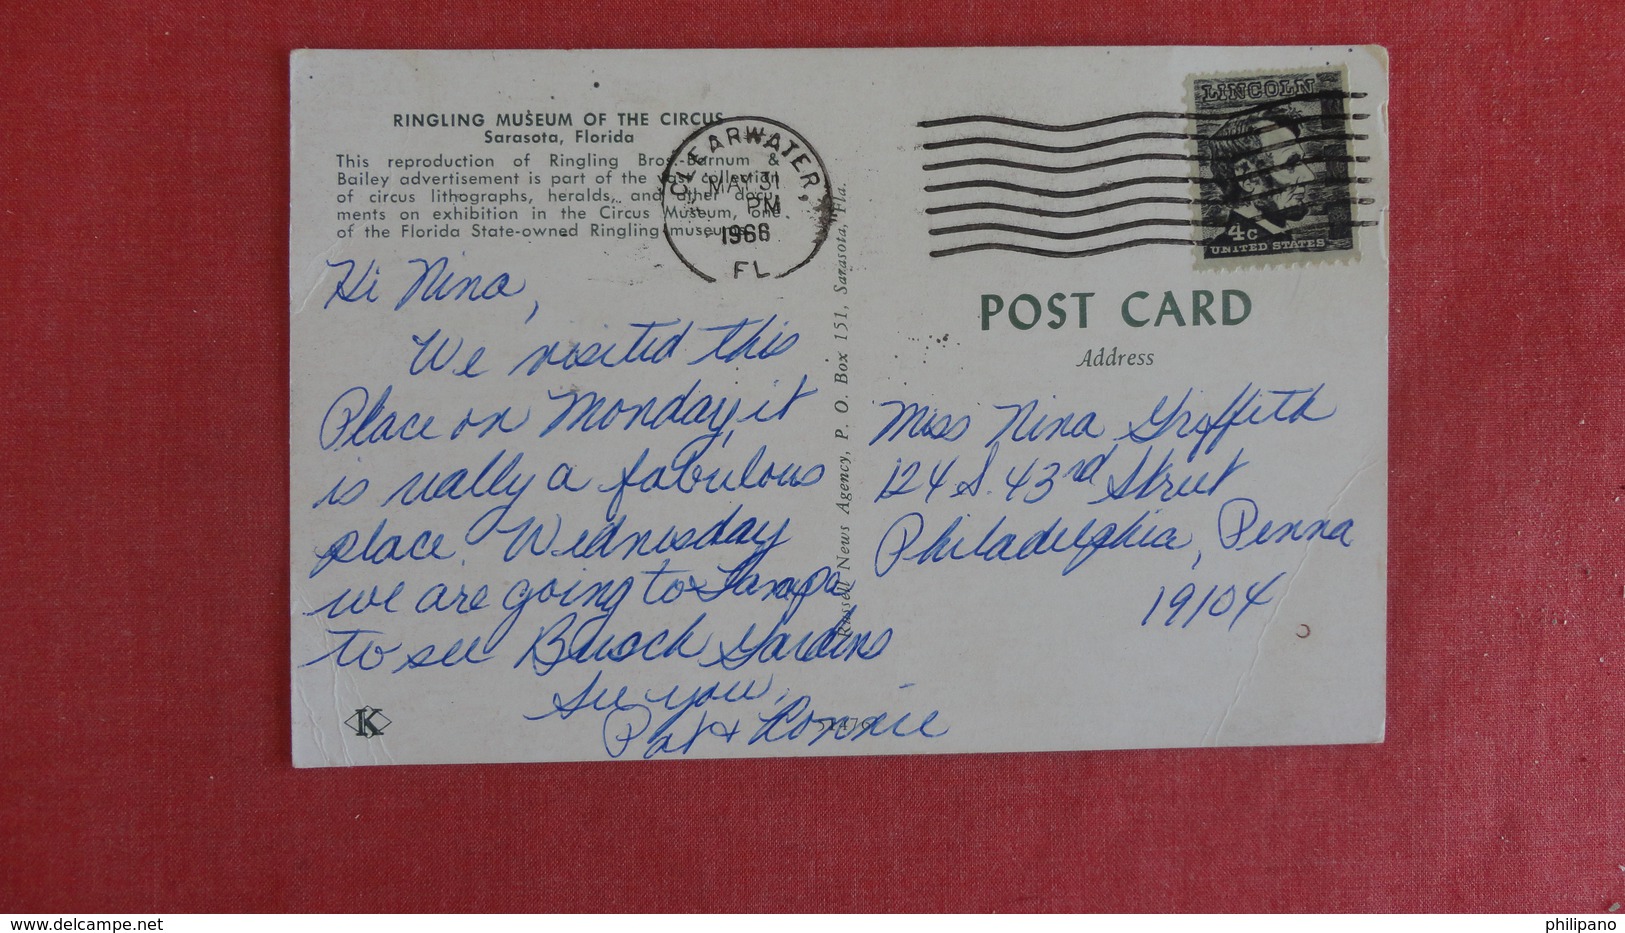 RINGLING MUSEUM OF THE CIRCUS
Sarasota, Florida
This reproduction of Ringling Bros.-Barnum &
Bailey advertisement is part of the vast collection
of circus lithographs, heralds, and other docu-
ments on exhibition in the Circus Museum, one
of the Florida State-owned Ringling museums.
Hi Nina,
We visited this
Place on Monday, it
is really a fabulous
place. Wednesday
we are going to Tampa
to see Busch Gardens
See you,
Pat & Ronnie
K
CLEARWATER,
MAY 31
PM
1966
FL
Russell News Agency, P. O. Box 151, Sarasota, Fla.
LINCOLN
4c
UNITED STATES
POST CARD
Address
Miss Nina Griffith
124 S. 43rd Street
Philadelphia, Penna
19104
delcampe.net
philipano